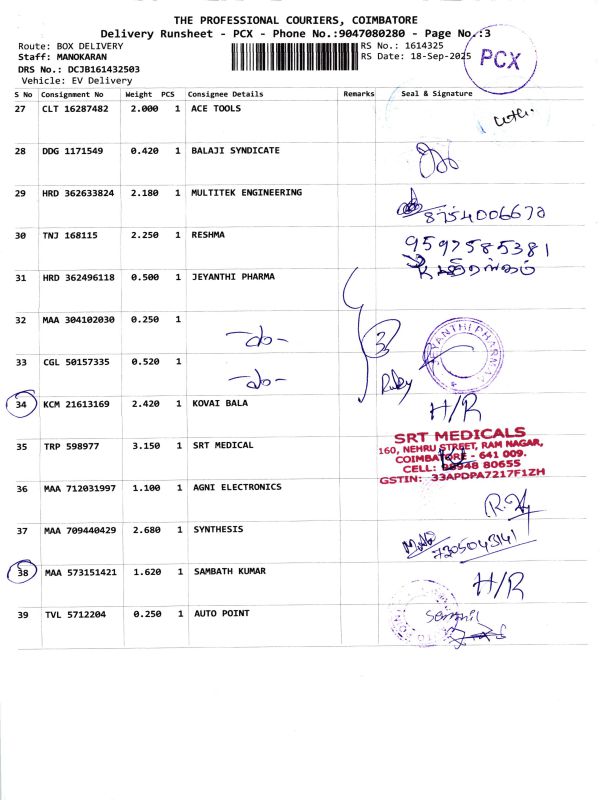 THE PROFESSIONAL COURIERS, COIMBATORE
Delivery Runsheet - PCX - Phone No.:9047080280 - Page No.:3
Route: BOX DELIVERY RS No.: 1614325
Staff: MANOKARAN RS Date: 18-Sep-2025
DRS No.: DCJB161432503
Vehicle: EV Delivery
PCX
S No Consignment No Weight PCS Consignee Details Remarks Seal & Signature
27 CLT 16287482 2.000 1 ACE TOOLS
28 DDG 1171549 0.420 1 BALAJI SYNDICATE
29 HRD 362633824 2.180 1 MULTITEK ENGINEERING
8754006670
30 TNJ 168115 2.250 1 RESHMA 9597585381
31 HRD 362496118 0.500 1 JEYANTHI PHARMA
32 MAA 304102030 0.250 1 -do- 3 JEYANTHI PHARMA
33 CGL 50157335 0.520 1 -do- Ruby
34 KCM 21613169 2.420 1 KOVAI BALA H/R
35 TRP 598977 3.150 1 SRT MEDICAL
SRT MEDICALS
160, NEHRU STREET, RAM NAGAR,
COIMBATORE - 641 009.
CELL: 98948 80655
GSTIN: 33APDPA7217F1ZH
36 MAA 712031997 1.100 1 AGNI ELECTRONICS
37 MAA 709440429 2.680 1 SYNTHESIS
7305043141
38 MAA 573151421 1.620 1 SAMBATH KUMAR H/R
39 TVL 5712204 0.250 1 AUTO POINT